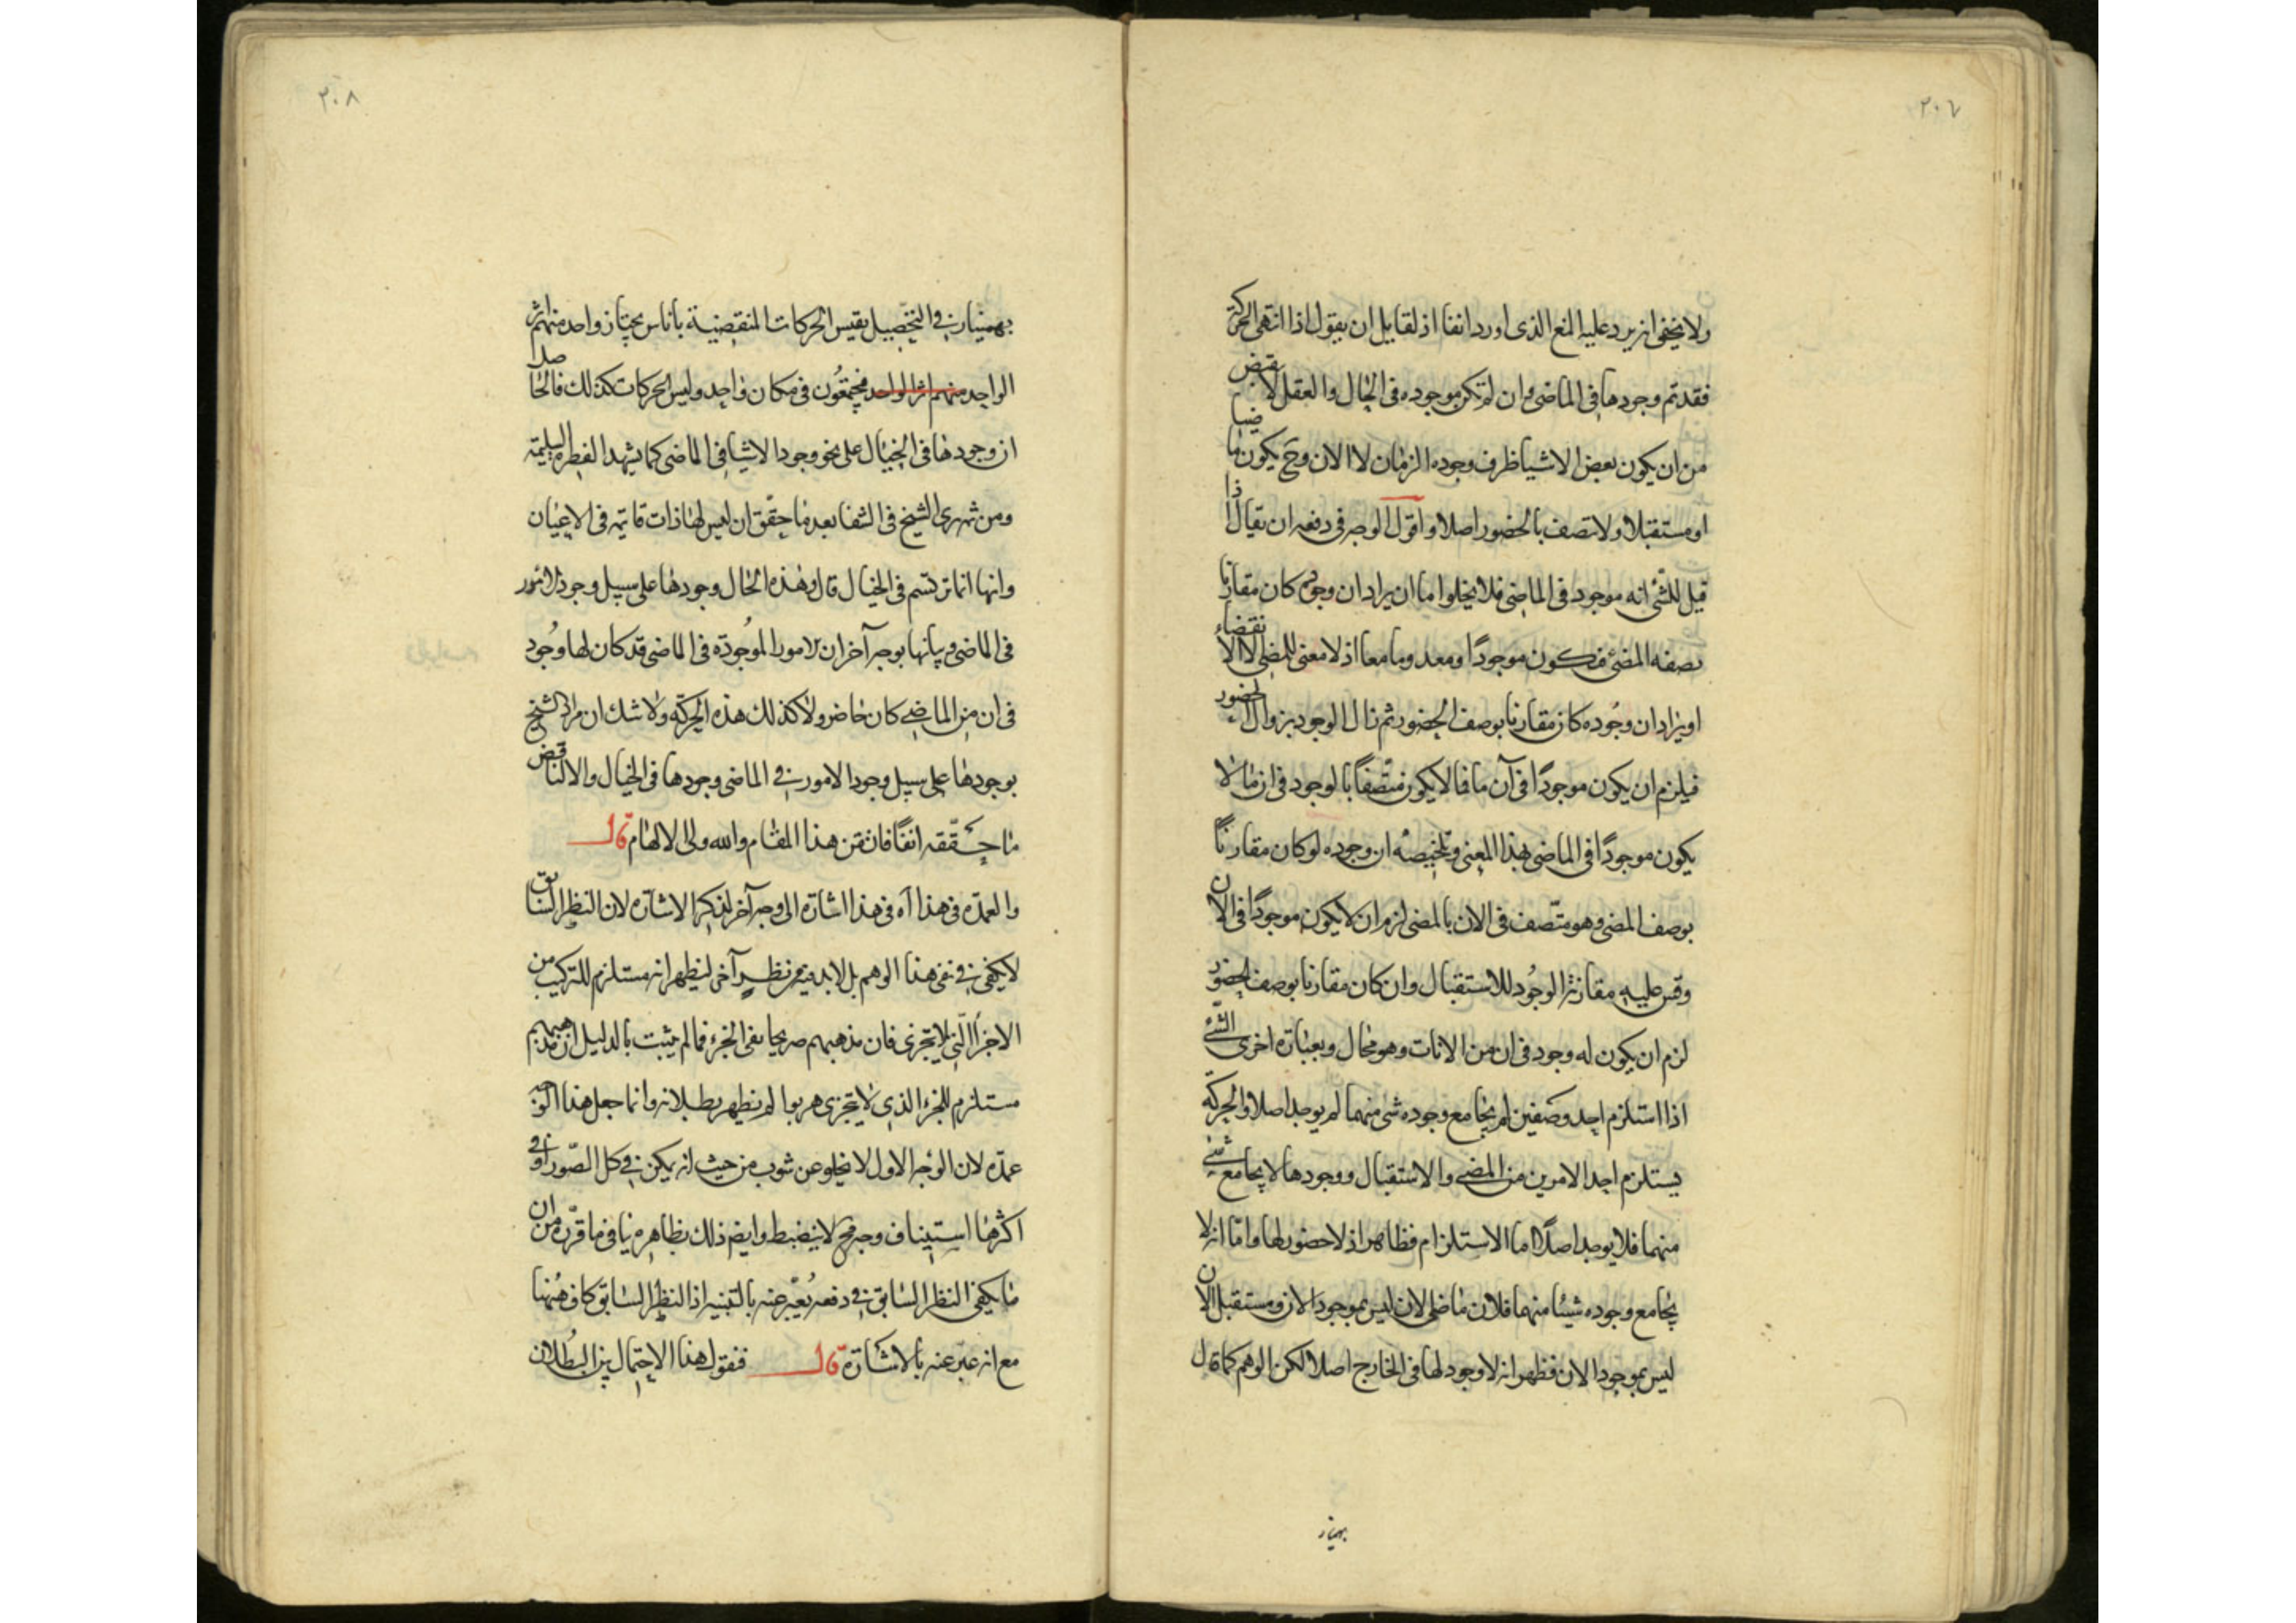 ٢٠٧
ولا يخفى انه يرد عليه المنع الذى اورد انفا اذ لقايل ان يقول اذا انتهى الحركة
فقد تم وجودها فى الماضى وان لم تكن موجوده فى الحال والعقل لا يقبض
من ان يكون بعض الاشيا ظرف وجوده الزمان لا الان وح يكون ماضيا
او مستقبلا ولا تصف بالحضور اصلا واقول الوجه فى دفعه ان يقال اذا
قيل للشئ انه موجود فى الماضى فلا يخلوا ما ان يراد ان وجوده كان مقارنا
بصفه المضى فيكون موجودًا ومعدوما معا اذ لا معنى للمضى الا الانقضاء
او يراد ان وجوده كان مقارنا بوصف الحضور ثم زال الوجود بزوال الحضور
فيلزم ان يكون موجودًا فى آن ما فما لا يكون متّصفًا بالوجود فى ان ما لا
يكون موجودًا فى الماضى بهذا المعنى وتلخيصه ان وجوده لو كان مقارنًا
بوصف المضى وهو متّصف فى الان بالمضى لزم ان لا يكون موجودًا فى الان
وقس عليه مقارنة الوجُود للاستقبال وان كان مقارنا بوصف الحضور
لزم ان يكون له وجود فى ان من الانات وهو محال وبعبارة اخرى الشئ
اذا استلزم احد وصفين لم يجامع وجوده شى منهما لم يوجد اصلا والحركة
يستلزم احد الامرين من المضى والاستقبال ووجودها لا يجامع شئ
منهما فلا يوجد اصلًا اما الاستلزام فظاهر اذ لا حضور لها واما انه لا
يجامع وجوده شيئا منهما فلان ماضى الان ليس بموجود الان ومستقبل الان
ليس بموجود الان فظهر انه لا وجود لها فى الخارج اصلا لكن الوهم كما قال
بهمنيار
٢٠٨
بهمنيار فى التحصيل يقيس الحركات المنقضية باناس يجتاز واحد منهم اثر
الواحد منهم اثر الواحد فيجتمعُون فى مكان واحد وليس الحركات كذلك فالحاصل
ان وجودها فى الخيال على نحو وجود الاشيا فى الماضى كما يشهد الفطره السليمه
ومن ثم ترى الشيخ فى الشفا بعد ما حقّق ان ليس لها ذات قائمه فى الاعيان
وانها انما ترتسم فى الخيال قال وهذه الحال وجودها على سبيل وجود الامور
فى الماضى وبيانها بوجه آخر ان الامور الموجودة فى الماضى قد كان لها وجُود
فى ان من الماضى كان حاضر ولا كذلك هذه الحركة ولا شك ان مراد الشيخ
بوجودها على سبيل وجود الامور فى الماضى وجودها فى الخيال والا لناقض
ما حققه انفًا فاتقن هذا المقام والله ولى الالهام قال
والعمدة فى هذا آه فى هذا اشارة الى وجه آخر لذكر الاشارة لان النظر السابق
لا يكفى فى نفى هذا الوهم بل لابد فيه من نظرٍ آخر ليظهر انه مستلزم للتركيب من
الاجزاء التى لا يتجزى فان مذهبهم صريحا نفى الجزء فما لم يثبت بالدليل ان مذهبهم
مستلزم للجزء الذى لا يتجزى هربوا لم يظهر بطلانه وانما جعل هذا الوجه
عمدّه لان الوجه الاول لا يخلو عن شوب من حيث انه يمكن فى كل الصّور او فى
اكثرها استيناف وجه فح لا ينضبط وايضا ذلك بظاهره ينافى ما قرّره من ان
ما يكفى النظر السابق فى دفعه يُعبّر عنه بالتنبيه اذ النظر السابق كاف هُهنا
مع انه عبّر عنه بالاشارة قال فنقول هذا الاحتمال بيّن البُطلان